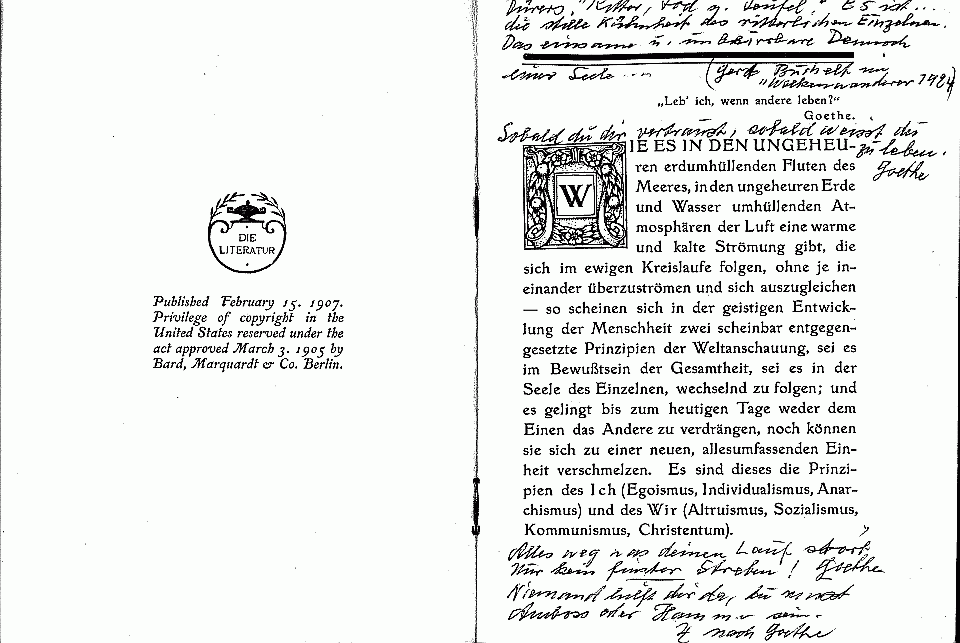 DIE
LITERATUR
Published February 15. 1907.
Privilege of copyright in the
United States reserved under the
act approved March 3. 1905 by
Bard, Marquardt & Co. Berlin.
Dürers „Ritter, Tod u. Teufel." Es ist...
die stille Kühnheit des ritterlichen Einzelnen.
Das einsame u. Dennoch
einer Seele ...
(Gerd
1924)
„Leb' ich, wenn andere leben?"
Goethe.
Sobald du dir vertraust, sobald weisst du
zu leben.
Goethe
WIE ES IN DEN UNGEHEU-
ren erdumhüllenden Fluten des
Meeres, in den ungeheuren Erde
und Wasser umhüllenden At-
mosphären der Luft eine warme
und kalte Strömung gibt, die
sich im ewigen Kreislaufe folgen, ohne je in-
einander überzuströmen und sich auszugleichen
— so scheinen sich in der geistigen Entwick-
lung der Menschheit zwei scheinbar entgegen-
gesetzte Prinzipien der Weltanschauung, sei es
im Bewußtsein der Gesamtheit, sei es in der
Seele des Einzelnen, wechselnd zu folgen; und
es gelingt bis zum heutigen Tage weder dem
Einen das Andere zu verdrängen, noch können
sie sich zu einer neuen, allesumfassenden Ein-
heit verschmelzen. Es sind dieses die Prinzi-
pien des Ich (Egoismus, Individualismus, Anar-
chismus) und des Wir (Altruismus, Sozialismus,
Kommunismus, Christentum).
Alles weg was deinen Lauf stört
Nur kein finster Streben! Goethe
Niemand hilft dir da, du musst
Amboss oder Hammer sein.
nach Goethe